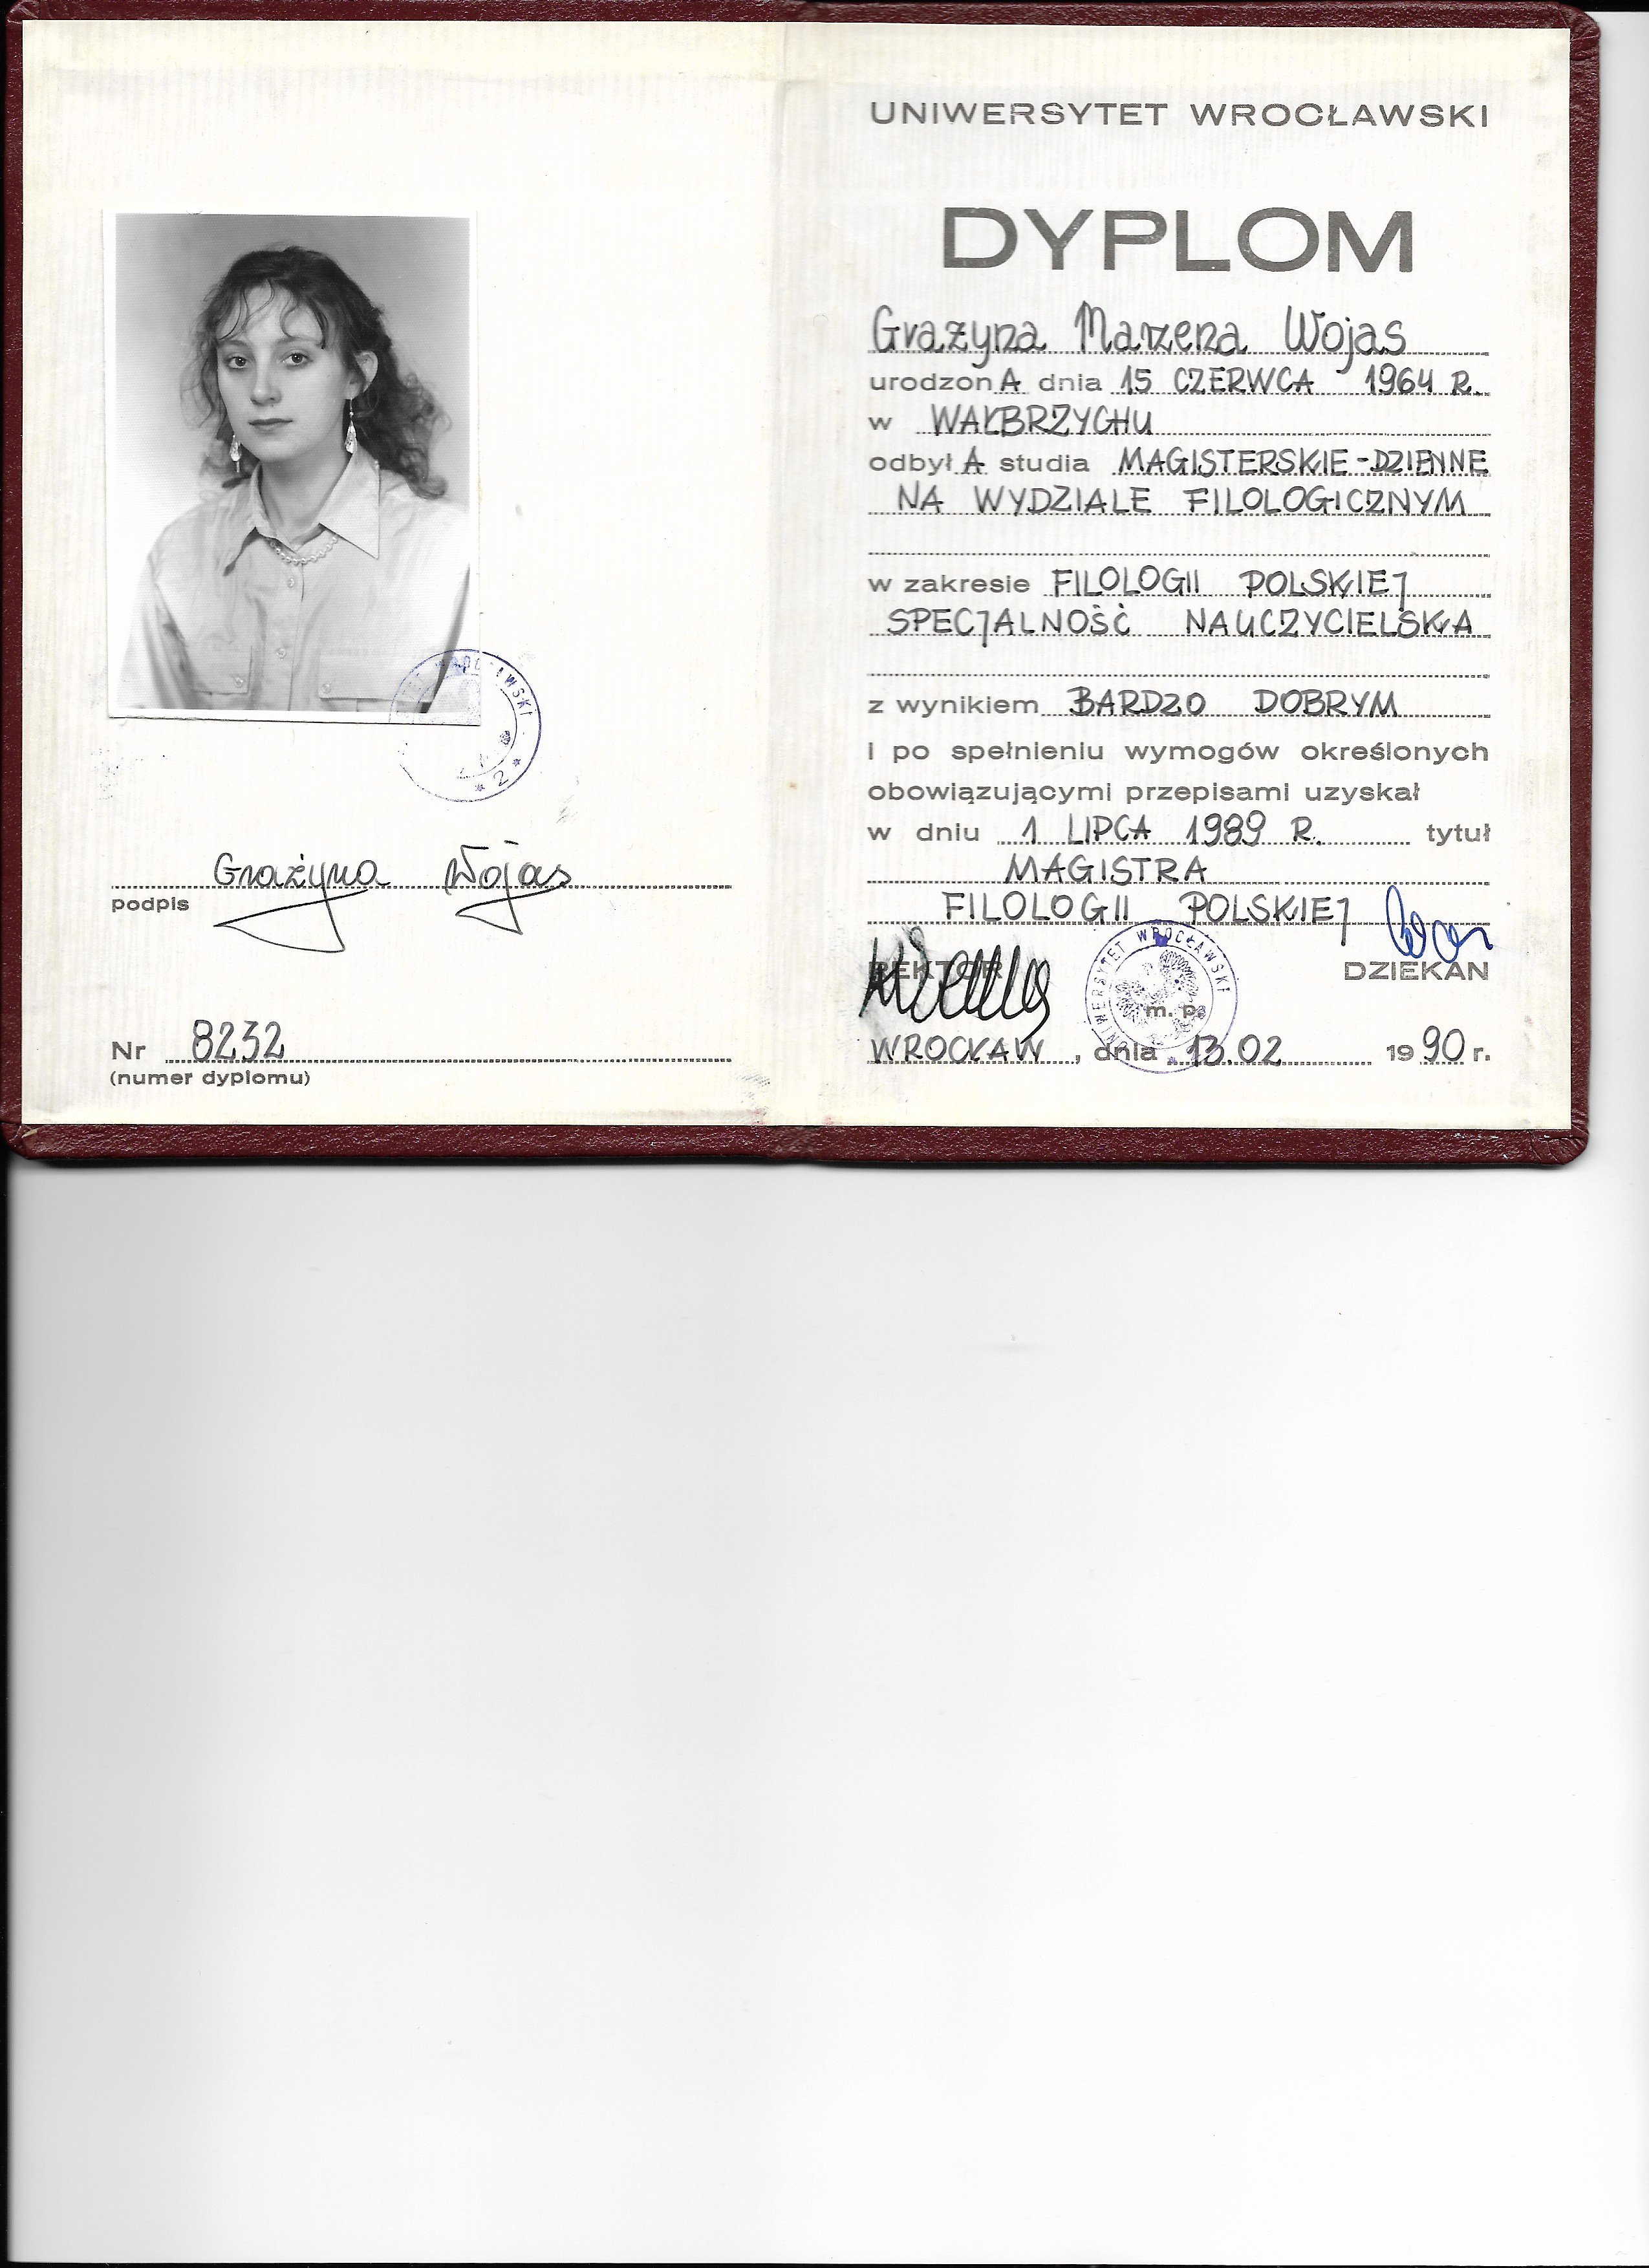 WROCŁAWSKI
* 2 *
Grażyna Wojas
podpis
Nr 8232
(numer dyplomu)
UNIWERSYTET WROCŁAWSKI
DYPLOM
Grażyna Marzena Wojas
urodzonA dnia 15 CZERWCA 1964 R.
w WAŁBRZYCHU
odbyłA studia MAGISTERSKIE-DZIENNE
NA WYDZIALE FILOLOGICZNYM
w zakresie FILOLOGII POLSKIEJ
SPECJALNOŚĆ NAUCZYCIELSKA
z wynikiem BARDZO DOBRYM
i po spełnieniu wymogów określonych
obowiązującymi przepisami uzyskał
w dniu 1 LIPCA 1989 R. tytuł
MAGISTRA
FILOLOGII POLSKIEJ
REKTOR
DZIEKAN
UNIWERSYTET WROCŁAWSKI
m. p.
WROCŁAW, dnia 13.02 1990 r.